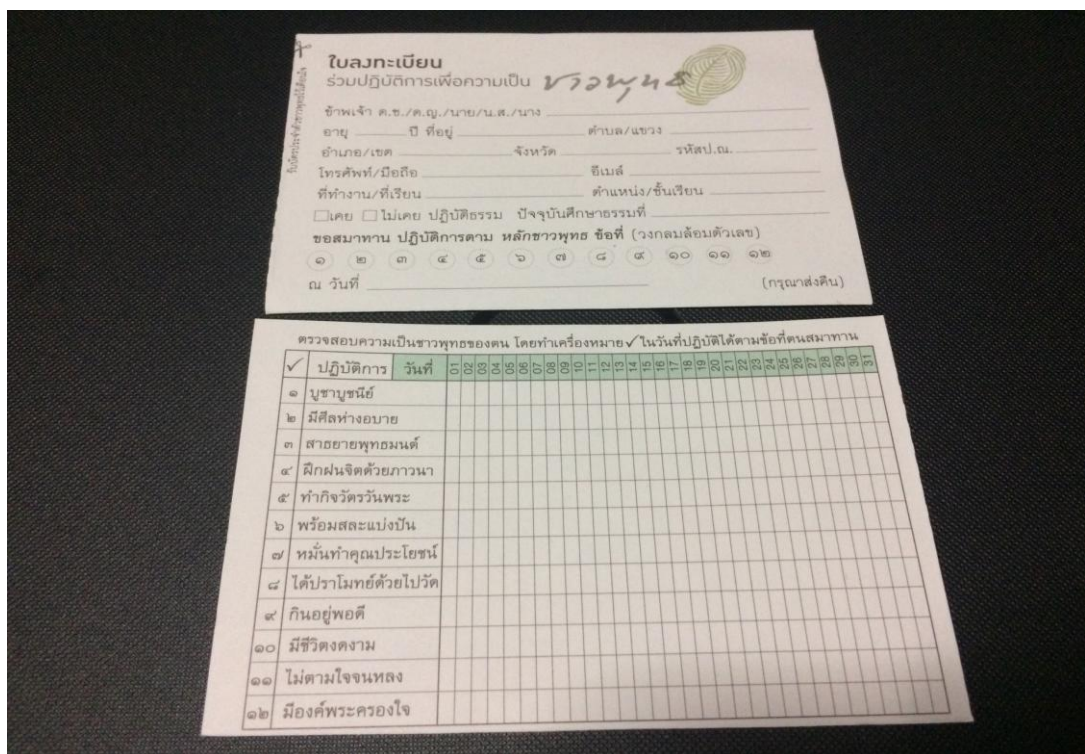 ใบลงทะเบียน
ร่วมปฏิบัติการเพื่อความเป็น ชาวพุทธ
ข้าพเจ้า ด.ช./ด.ญ./นาย/น.ส./นาง
อายุ ปี ที่อยู่ ตำบล/แขวง
อำเภอ/เขต จังหวัด รหัสป.ณ.
โทรศัพท์/มือถือ อีเมล์
ที่ทำงาน/ที่เรียน ตำแหน่ง/ชั้นเรียน
เคย ไม่เคย ปฏิบัติธรรม ปัจจุบันศึกษาธรรมที่
ขอสมาทาน ปฏิบัติการตาม หลักชาวพุทธ ข้อที่ (วงกลมล้อมตัวเลข)
๑ ๒ ๓ ๔ ๕ ๖ ๗ ๘ ๙ ๑๐ ๑๑ ๑๒
ณ วันที่ (กรุณาส่งคืน)
ตรวจสอบความเป็นชาวพุทธของตน โดยทำเครื่องหมาย ✓ ในวันที่ปฏิบัติได้ตามข้อที่ตนสมาทาน
✓ ปฏิบัติการ วันที่ 01 02 03 04 05 06 07 08 09 10 11 12 13 14 15 16 17 18 19 20 21 22 23 24 25 26 27 28 29 30 31
๑ บูชาบูชนีย์
๒ มีศีลห่างอบาย
๓ สาธยายพุทธมนต์
๔ ฝึกฝนจิตด้วยภาวนา
๕ ทำกิจวัตรวันพระ
๖ พร้อมสละแบ่งปัน
๗ หมั่นทำคุณประโยชน์
๘ ได้ปราโมทย์ด้วยไปวัด
๙ กินอยู่พอดี
๑๐ มีชีวิตงดงาม
๑๑ ไม่ตามใจจนหลง
๑๒ มีองค์พระครองใจ